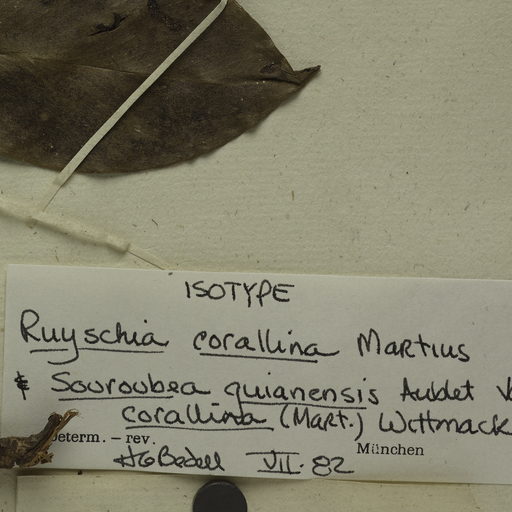 ISOTYPE
Ruyschia corallina Martius
& Souroubea guianensis Aublet
corallina (Mart.) Wittmack
Determ. – rev.
München
HG Bedell VII. 82